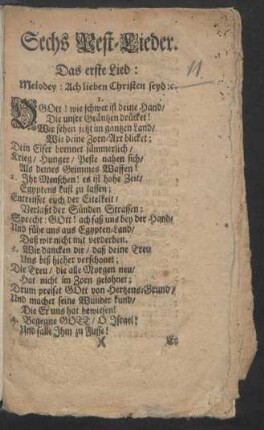 Sechs Pest-Lieder.
11
Das erste Lied:
Melodey: Ach lieben Christen seyd ꝛc.
1.
O GOtt! wie schwer ist deine Hand/
Die unser Gräntzen drücket!
Wir sehen jetzt im gantzen Land/
Wie deine Zorn-Art blicket;
Dein Eifer brennet jämmerlich/
Krieg/ Hunger/ Peste nahen sich/
Als deines Grimmes Waffen!
2. Ihr Menschen! es ist hohe Zeit/
Egyptens Lust zu lassen;
Entreisset euch der Eitelkeit/
Verlaßt der Sünden Strassen;
Sprecht: GOtt! ach faß uns bey der Hand/
Und führ uns aus Egypten-Land/
Daß wir nicht mit verderben.
3. Wir dancken dir/ daß deine Treu
Uns biß hieher verschonet;
Die Treu/ die alle Morgen neu/
Hat nicht im Zorn gelohnet;
Drum preiset GOtt von Hertzens-Grund/
Und machet seine Wunder kund/
Die Er uns hat bewiesen!
4. Begegne GOTT/ O Israel!
Und falle Ihm zu Fusse!
X